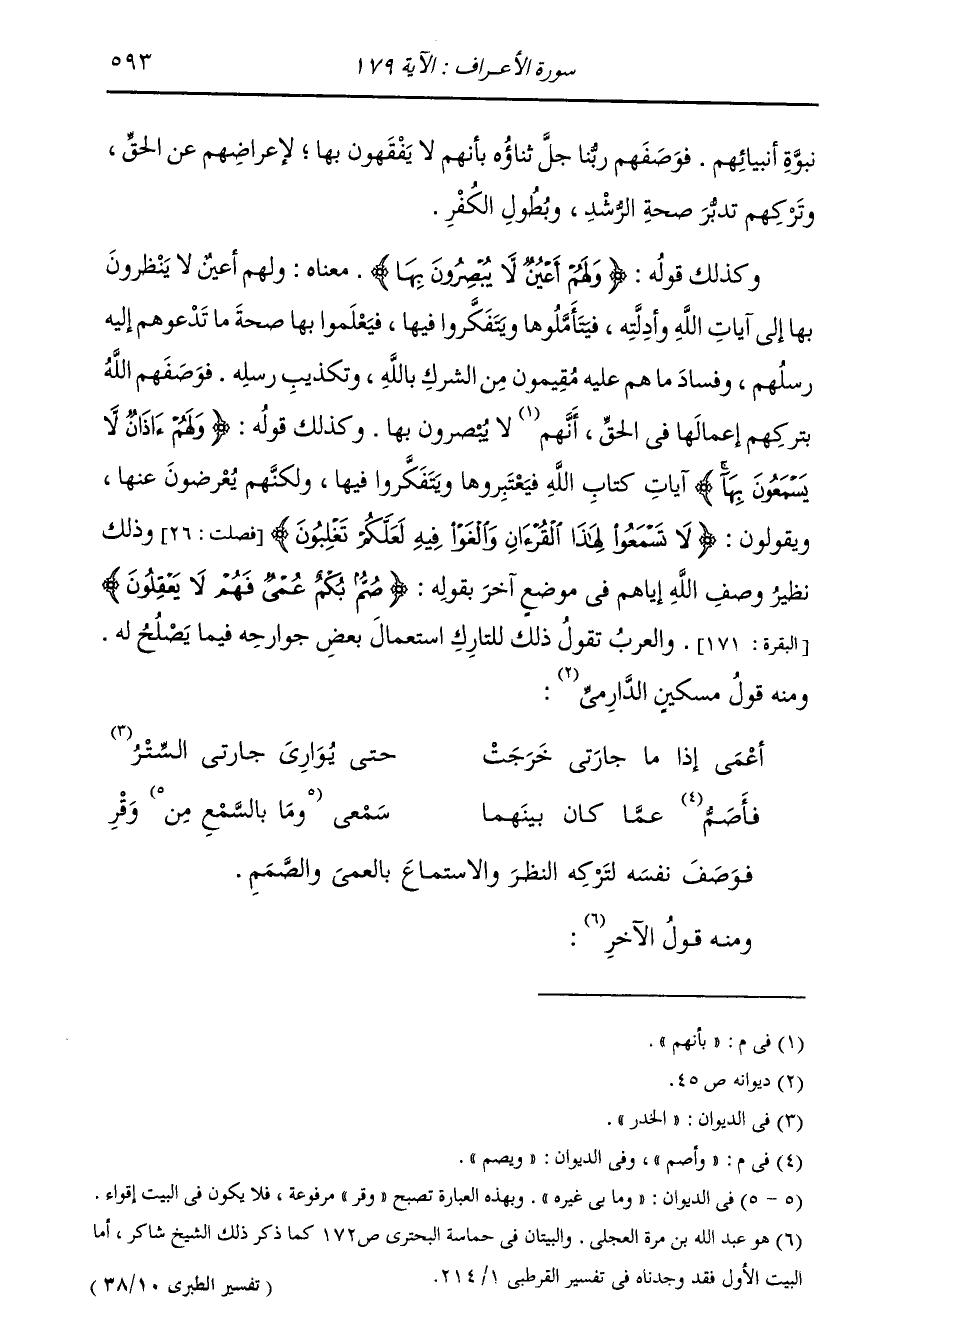 سورة الأعراف : الآية ١٧٩
٥٩٣
نبوَّةِ أنبيائِهم . فوَصَفَهم ربُّنا جلَّ ثناؤُه بأنهم لا يَفْقَهون بها ؛ لإعراضِهم عن الحقِّ ،
وتَرْكِهم تدبُّرَ صحةِ الرُّشْدِ ، وبُطُولِ الكُفْرِ .
وكذلك قولُه : ﴿ وَلَهُمْ أَعْيُنٌ لَّا يُبْصِرُونَ بِهَا ﴾ . معناه : ولهم أعينٌ لا يَنْظرونَ
بها إلى آياتِ اللَّهِ وأدِلَّتِه ، فيَتَأمَّلُوها ويَتَفَكَّروا فيها ، فيَعْلَموا بها صحةَ ما تَدْعوهم إليه
رسلُهم ، وفسادَ ما هم عليه مُقِيمون مِن الشركِ باللَّهِ ، وتكذيبِ رسلِه . فوَصَفَهم اللَّهُ
بتركِهم إعمالَها فى الحقِّ ، أنَّهم(١) لا يُبْصرون بها . وكذلك قولُه : ﴿ وَلَهُمْ ءَاذَانٌ لَّا
يَسْمَعُونَ بِهَآ ﴾ آياتِ كتابِ اللَّهِ فيَعْتَبِروها ويَتَفَكَّروا فيها ، ولكنَّهم يُعْرضون عنها ،
ويقولون : ﴿ لَا تَسْمَعُوا۟ لِهَٰذَا ٱلْقُرْءَانِ وَٱلْغَوْا۟ فِيهِ لَعَلَّكُمْ تَغْلِبُونَ ﴾ [فصلت : ٢٦] وذلك
نظيرُ وصفِ اللَّهِ إياهم فى موضعٍ آخرَ بقولِه : ﴿ صُمٌّۢ بُكْمٌ عُمْىٌ فَهُمْ لَا يَعْقِلُونَ ﴾
[البقرة : ١٧١] . والعربُ تقولُ ذلك للتاركِ استعمالَ بعضِ جوارحِه فيما يَصْلُحُ له .
ومنه قولُ مسكينٍ الدَّارِمىِّ(٢) :
أعْمَى إذا ما جارَتى خَرَجَتْ حتى يُوَارِىَ جارتى السِّتْرُ(٣)
فأَصَمُّ(٤) عمَّا كان بينَهما سَمْعى (٥وما بالسَّمْعِ مِن٥) وَقْرِ
فوَصَفَ نفسَه لتَرْكِه النظرَ والاستماعَ بالعمىَ والصَّمَمِ .
ومنه قولُ الآخرِ(٦) :
(١) فى م : « بأنهم » .
(٢) ديوانه ص ٤٥.
(٣) فى الديوان : « الخدر » .
(٤) فى م : « وأصم » ، وفى الديوان : « ويصم » .
(٥ - ٥) فى الديوان : « وما بى غيره » . وبهذه العبارة تصبح « وقر » مرفوعة ، فلا يكون فى البيت إقواء .
(٦) هو عبد الله بن مرة العجلى . والبيتان فى حماسة البحترى ص١٧٢ كما ذكر ذلك الشيخ شاكر ، أما
البيت الأول فقد وجدناه فى تفسير القرطبى ١/ ٢١٤.
( تفسير الطبرى ٣٨/١٠ )